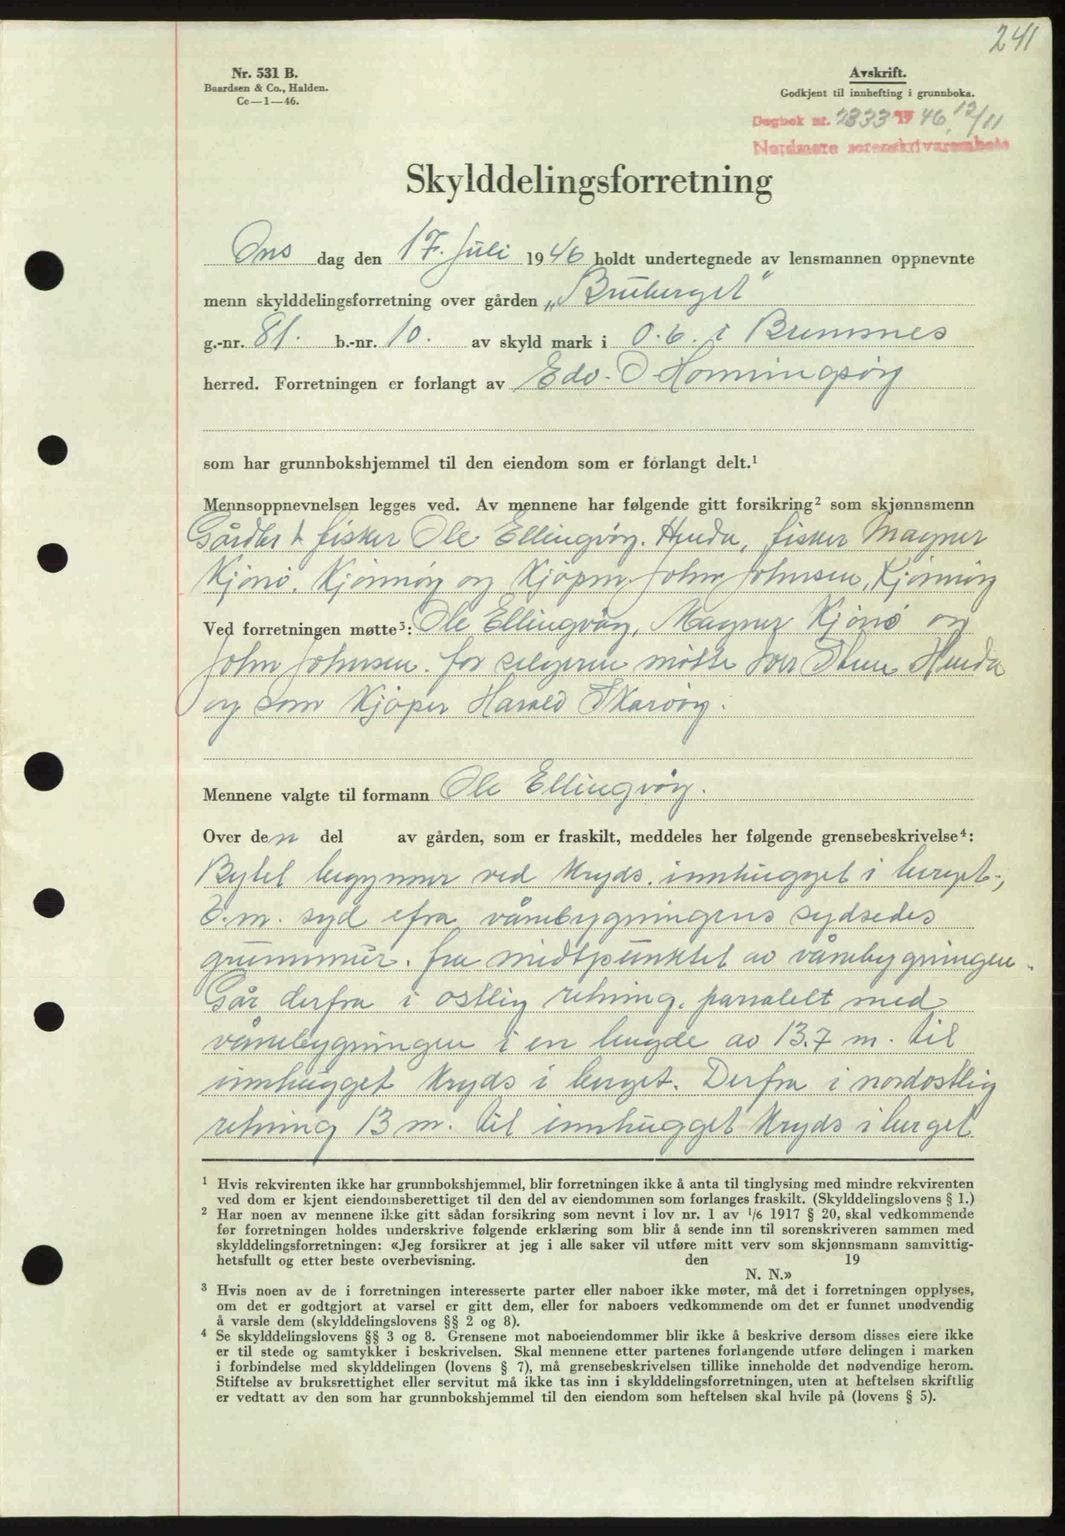 241
Nr. 531 B.
Baardsen & Co., Halden.
Cc—1—46.
Avskrift.
Godkjent til innhefting i grunnboka.
Dagbok nr. 2833 1946, 12/11
Nordmøre sorenskrivarembete
Skylddelingsforretning
Ons dag den 17. Juli 1946 holdt undertegnede av lensmannen oppnevnte
menn skylddelingsforretning over gården „Bruberget"
g.-nr. 81. b.-nr. 10. av skyld mark i 0.6. i Bremsnes
herred. Forretningen er forlangt av Edv. O Honningsøy
som har grunnbokshjemmel til den eiendom som er forlangt delt.¹
Mennsoppnevnelsen legges ved. Av mennene har følgende gitt forsikring² som skjønnsmenn
Gårdbr & fisker Ole Ellingvåg. Henda, fisker Magner
Kjønø. Kjønnøy og Kjøpm. John Johnsen, Kjønnøy
Ved forretningen møtte³: Ole Ellingvåg, Magner Kjønø og
John Johnsen. for selgeren møtte Henda
og som Kjøper Harald Skarvøy.
Mennene valgte til formann Ole Ellingvåg.
Over den del av gården, som er fraskilt, meddeles her følgende grensebeskrivelse⁴:
Bytet begynner ved kryds. innhugget i berget,
6. m. syd efra vånebygningens sydsedes
grunnmur. fra midtpunktet av vånebygningen.
Går derfra i ostlig retning. parralelt med
vånebygningen i en lengde av 13.7 m. til
innhugget kryds i berget. Derfra i nordostlig
retning 13 m. til innhugget kryds i berget.
¹ Hvis rekvirenten ikke har grunnbokshjemmel, blir forretningen ikke å anta til tinglysing med mindre rekvirenten
ved dom er kjent eiendomsberettiget til den del av eiendommen som forlanges fraskilt. (Skylddelingslovens § 1.)
² Har noen av mennene ikke gitt sådan forsikring som nevnt i lov nr. 1 av 1/6 1917 § 20, skal vedkommende
før forretningen holdes underskrive følgende erklæring som blir å sende inn til sorenskriveren sammen med
skylddelingsforretningen: «Jeg forsikrer at jeg i alle saker vil utføre mitt verv som skjønnsmann samvittig-
hetsfullt og etter beste overbevisning. den 19
N. N.»
³ Hvis noen av de i forretningen interesserte parter eller naboer ikke møter, må det i forretningen opplyses,
om det er godtgjort at varsel er gitt dem, eller for naboers vedkommende om det er funnet unødvendig
å varsle dem (skylddelingslovens §§ 2 og 8).
⁴ Se skylddelingslovens §§ 3 og 8. Grensene mot naboeiendommer blir ikke å beskrive dersom disses eiere ikke
er til stede og samtykker i beskrivelsen. Skal mennene etter partenes forlangende utføre delingen i marken
i forbindelse med skylddelingen (lovens § 7), må grensebeskrivelsen tillike inneholde det nødvendige herom.
Stiftelse av bruksrettighet eller servitut må ikke tas inn i skylddelingsforretningen, uten at heftelsen skriftlig
er vedtatt av den som har grunnbokshjemmel til den eiendom som heftelsen skal hvile på (lovens § 5).